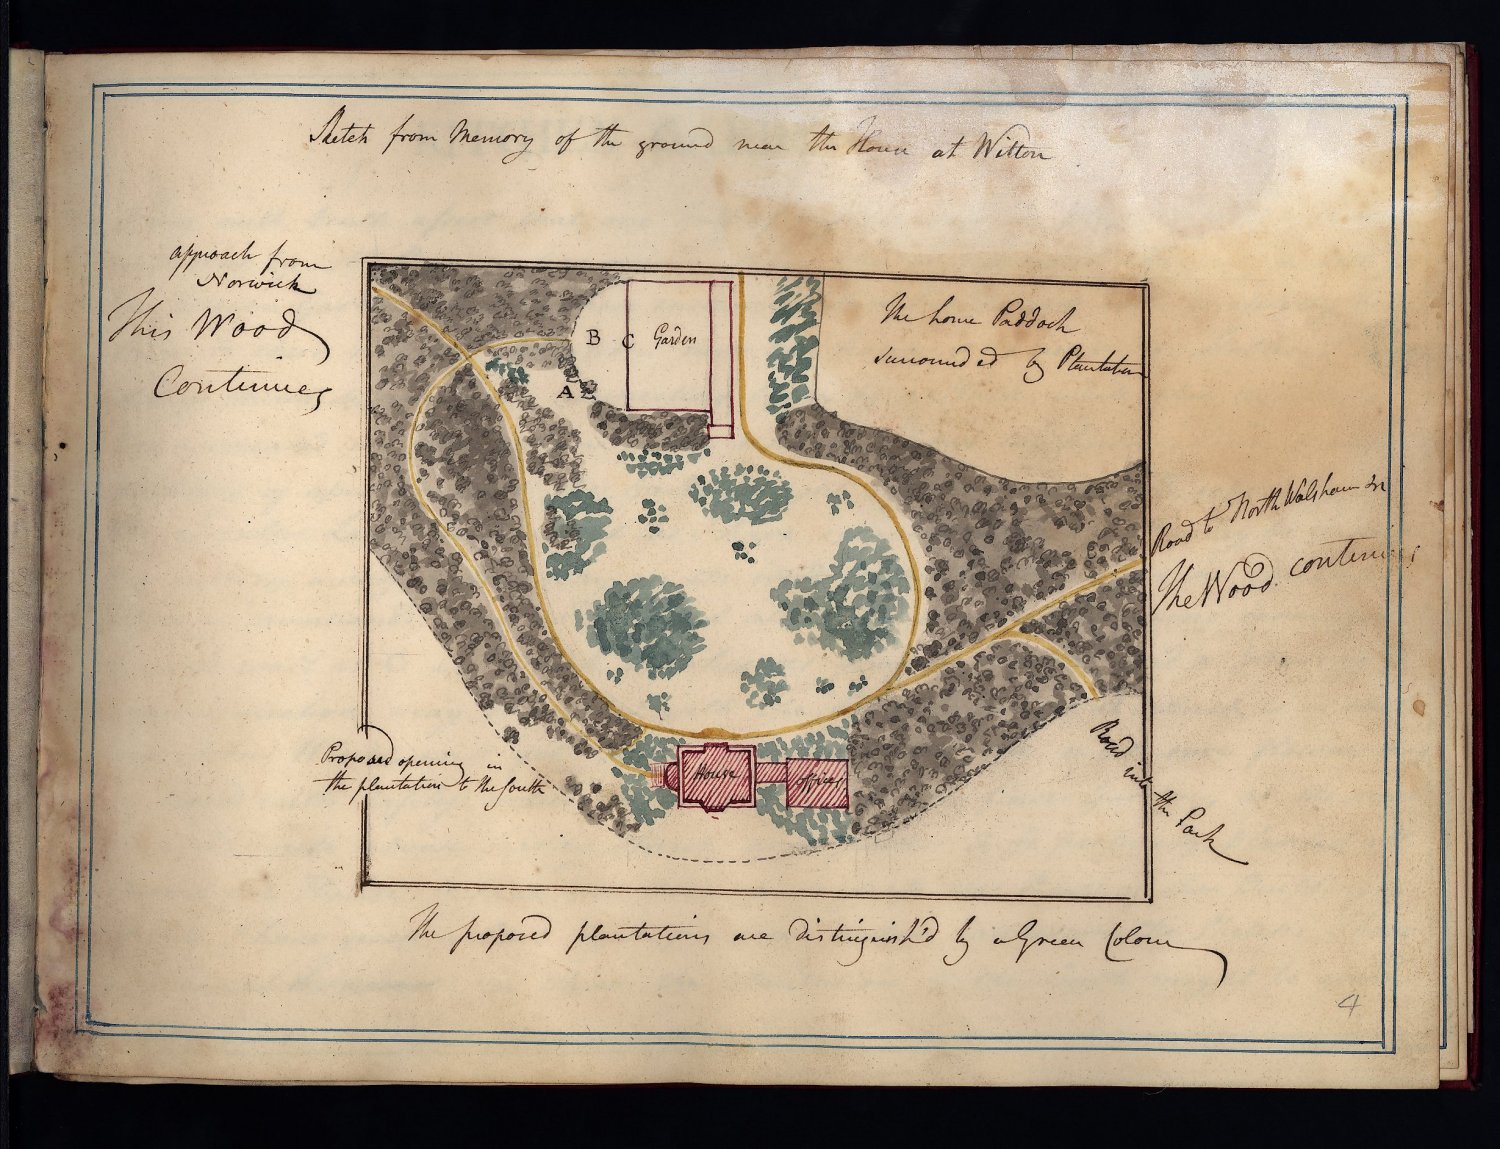 Sketch from Memory of the ground near the House at Witton
approach from
Norwich
This Wood
Continues
B
C
Garden
A
The home Paddock
surrounded by Plantation
Road to North Walsham &c
The Wood continues
Road into the Park
Proposed opening in
the plantation to the South
House
offices
The proposed plantations are distinguish'd by a Green Colour
4